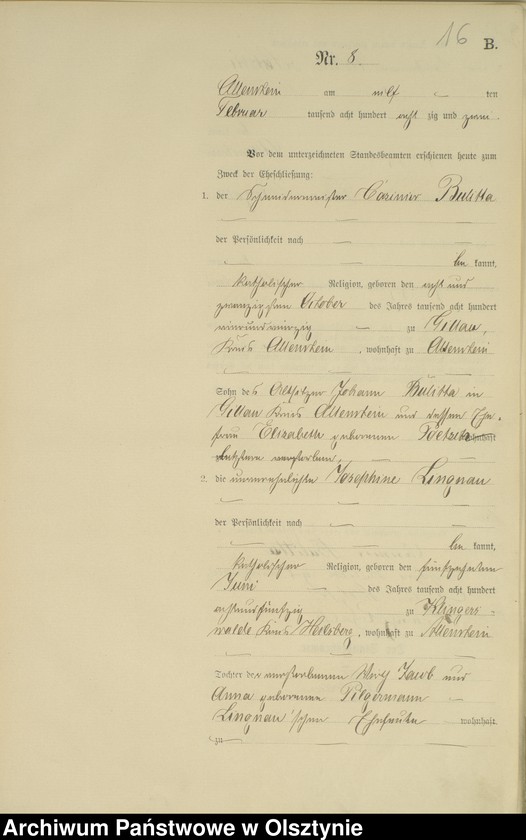 16
B.
Nr. 8.
Allenstein am elf ten
Februar tausend acht hundert acht zig und zwei.
Vor dem unterzeichneten Standesbeamten erschienen heute zum
Zweck der Eheschließung:
1. der Schneidermeister Casimir Bulitta
der Persönlichkeit nach
be kannt,
katholischer Religion, geboren den acht und
zwanzigsten October des Jahres tausend acht hundert
zu Gillau,
Kreis Allenstein, wohnhaft zu Allenstein
Sohn des Altsitzer Johann Bulitta in
Gillau Kreis Allenstein und dessen Ehe-
frau Elizabeth geborenen wohnhaft
letztere verstorben.
2. die unverehelichte Josephine Lingnau
der Persönlichkeit nach
be kannt,
katholischer Religion, geboren den fünfzehnten
Juni des Jahres tausend acht hundert
achtundfünfzig zu Klingers-
walde Kreis Heilsberg, wohnhaft zu Allenstein
Tochter der verstorbenen Jacob und
Anna geborenen Pilgermann
Lingnau'schen Eheleute wohnhaft
zu
Archiwum Państwowe w Olsztynie